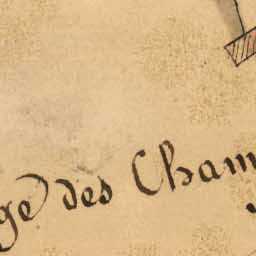 ge des Cham